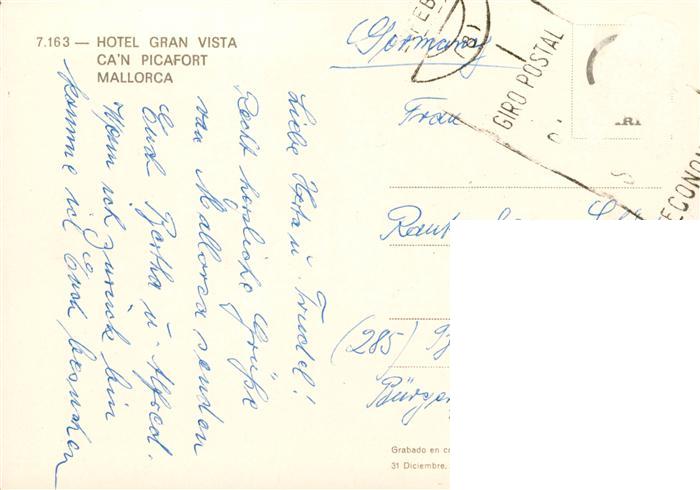 7.163 — HOTEL GRAN VISTA
CA'N PICAFORT
MALLORCA
Liebe Herta u. Trudel!
Recht herzliche Grüße
von Mallorca senden
Euch Bertha u. Alfred.
Wenn ich zurück bin
komme ich Euch besuchen
(Germany)
Frau
(285)
Bürger
GIRO POSTAL
ECONO
FEB
81
Grabado en c
31 Diciembre,